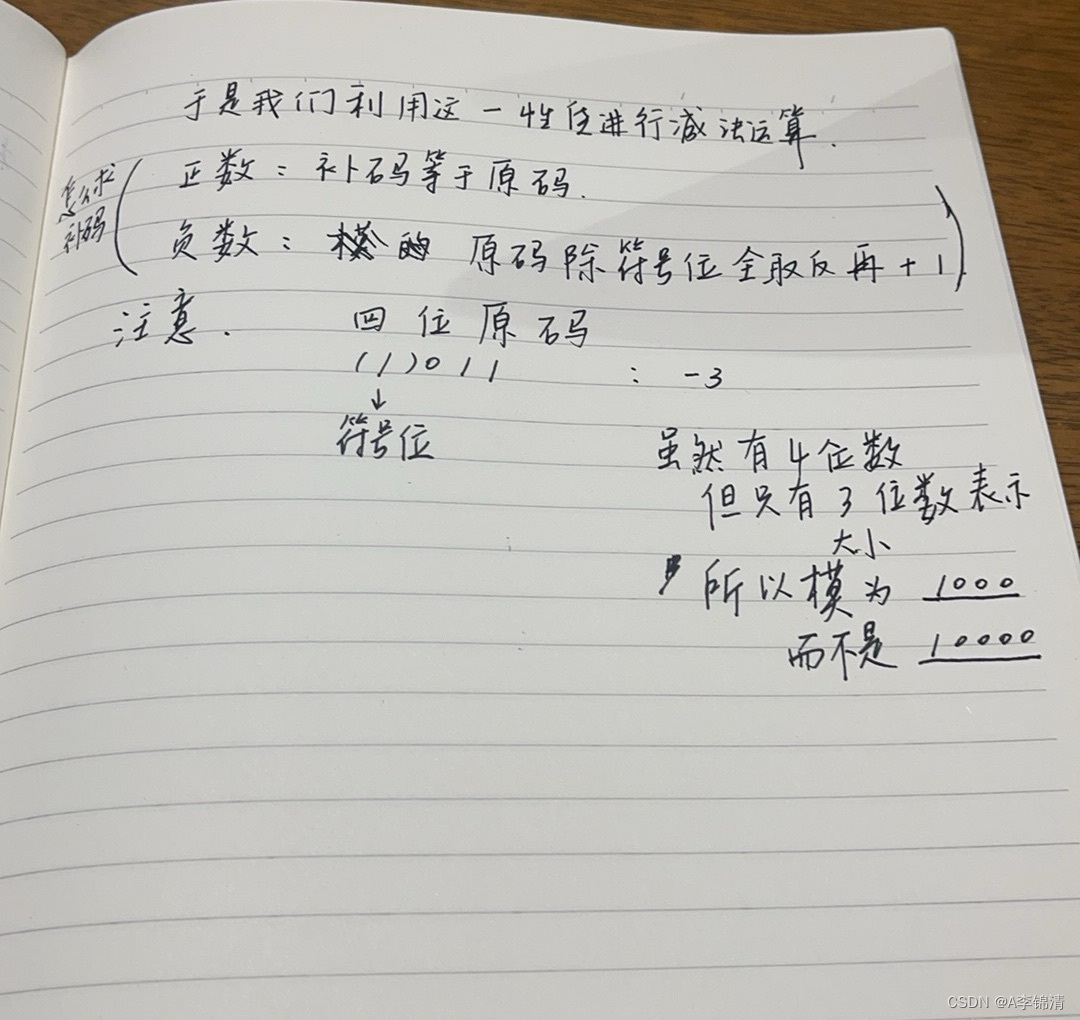 于是我们利用这一性质进行减法运算.
怎么求
补码
(正数：补码等于原码.
负数：原码除符号位全取反再+1)
注意.
四位原码
(1)011 : -3
↓
符号位
虽然有4位数
但只有3位数表示
大小
所以模为 1000
而不是 10000
CSDN @A李锦清